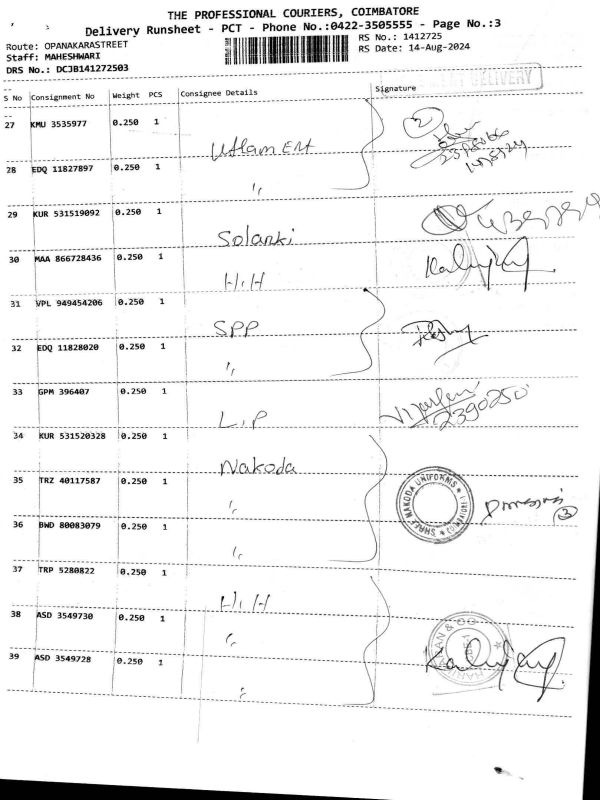 THE PROFESSIONAL COURIERS, COIMBATORE
Delivery Runsheet - PCT - Phone No.:0422-3505555 - Page No.:3
Route: OPANAKARASTREET
RS No.: 1412725
Staff: MAHESHWARI
RS Date: 14-Aug-2024
DRS No.: DCJB141272503
DELIVERY
S No Consignment No Weight PCS Consignee Details Signature
27 KMU 3535977 0.250 1 Uttam Ent 2
28 EDQ 11827897 0.250 1 "
29 KUR 531519092 0.250 1 Solanki
30 MAA 866728436 0.250 1 H.H
31 VPL 949454206 0.250 1 SPP
32 EDQ 11828020 0.250 1 "
33 GPM 396407 0.250 1 L.P 2390250
34 KUR 531520328 0.250 1 Nakoda
35 TRZ 40117587 0.250 1 " SHREE NAKODA UNIFORMS
36 BWD 80083079 0.250 1 " 3
37 TRP 5280822 0.250 1 H.H
38 ASD 3549730 0.250 1 "
39 ASD 3549728 0.250 1 "